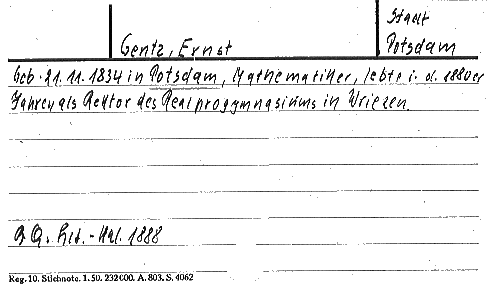 Stadt
Gentz, Ernst
Potsdam
Geb. 21.11.1834 in Potsdam, Mathematiker, lebte i. d. 1880er
Jahren als Rektor des Realprogymnasiums in Wriezen.
Lit.-Kal. 1888
Reg. 10. Stichnote. 1. 50. 232000. A. 803. S. 4062